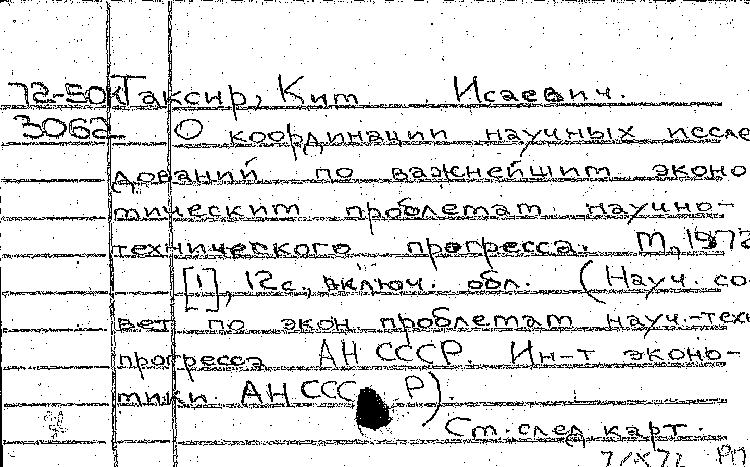 72-50к Таксир, Ким Исаевич.
3062 О координации научных иссле
дований по важнейшим эконо
мическим проблемам научно-
технического прогресса. М., 1972
[1], 12с., включ. обл. (Науч. со-
вет по экон. проблемам науч.-техн
прогресса АН СССР. Ин-т эконо-
мики АН СССР).
См. след. карт.
7/X 72